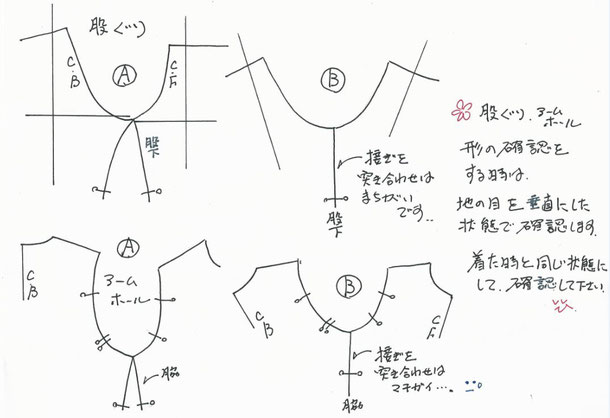 股ぐり
C.B
Ⓐ
C.F
股下
Ⓑ
接ぎを
突き合わせは
まちがい
です..
股下
❀ 股ぐり、アーム
ホール
形の確認を
する時は、
地の目を垂直にした
状態で確認します。
着た時と同じ状態に
して、確認して下さい
Ⓐ
CB
アーム
ホール
脇
Ⓑ
CB
C.F
接ぎを
突き合わせは
マチガイ…。
脇